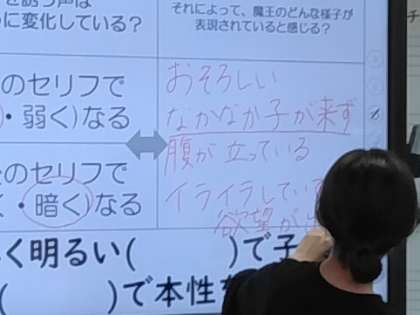 に変化している？
それによって、魔王のどんな様子が
表現されていると感じる？
のセリフで
・弱く)なる
おそろしい
なかなか子が来ず
腹が立っている
のセリフで
・暗く)なる
イライラしてい
欲望が
く明るい( )で子
( )で本性